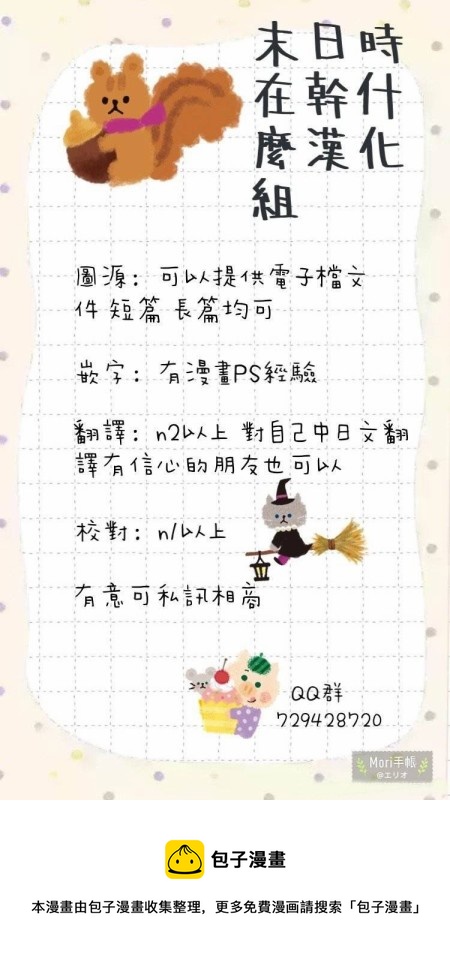 時什化
日幹漢
末在麼組
圖源：可以提供電子檔文
件 短篇 長篇均可
嵌字：有漫畫PS經驗
翻譯：n2以上 對自己中日文翻
譯有信心的朋友也可以
校對：n1以上
有意可私訊相商
QQ群
729428720
Mori手帳
@エリオ
包子漫畫
本漫畫由包子漫畫收集整理，更多免費漫画請搜索「包子漫畫」